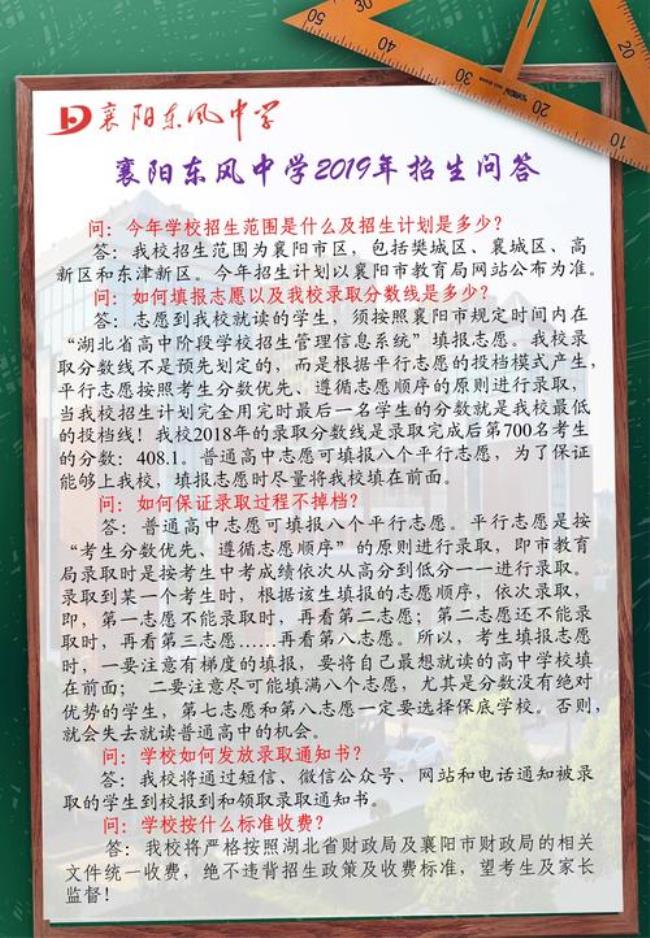 50
40
30
20
10
20
襄阳东风中学
襄阳东风中学2019年招生问答
问：今年学校招生范围是什么及招生计划是多少？
答：我校招生范围为襄阳市区，包括樊城区、襄城区、高
新区和东津新区。今年招生计划以襄阳市教育局网站公布为准。
问：如何填报志愿以及我校录取分数线是多少？
答：志愿到我校就读的学生，须按照襄阳市规定时间内在
“湖北省高中阶段学校招生管理信息系统”填报志愿。我校录
取分数线不是预先划定的，而是根据平行志愿的投档模式产生，
平行志愿按照考生分数优先、遵循志愿顺序的原则进行录取，
当我校招生计划完全用完时最后一名学生的分数就是我校最低
的投档线！我校2018年的录取分数线是录取完成后第700名考生
的分数：408.1。普通高中志愿可填报八个平行志愿，为了保证
能够上我校，填报志愿时尽量将我校填在前面。
问：如何保证录取过程不掉档？
答：普通高中志愿可填报八个平行志愿。平行志愿是按
“考生分数优先、遵循志愿顺序”的原则进行录取，即市教育
局录取时是按考生中考成绩依次从高分到低分一一进行录取。
录取到某一个考生时，根据该生填报的志愿顺序，依次录取，
即，第一志愿不能录取时，再看第二志愿；第二志愿还不能录
取时，再看第三志愿……再看第八志愿。所以，考生填报志愿
时，一要注意有梯度的填报，要将自己最想就读的高中学校填
在前面； 二要注意尽可能填满八个志愿，尤其是分数没有绝对
优势的学生，第七志愿和第八志愿一定要选择保底学校。否则，
就会失去就读普通高中的机会。
问：学校如何发放录取通知书？
答：我校将通过短信、微信公众号、网站和电话通知被录
取的学生到校报到和领取录取通知书。
问：学校按什么标准收费？
答：我校将严格按照湖北省财政局及襄阳市财政局的相关
文件统一收费，绝不违背招生政策及收费标准，望考生及家长
监督！